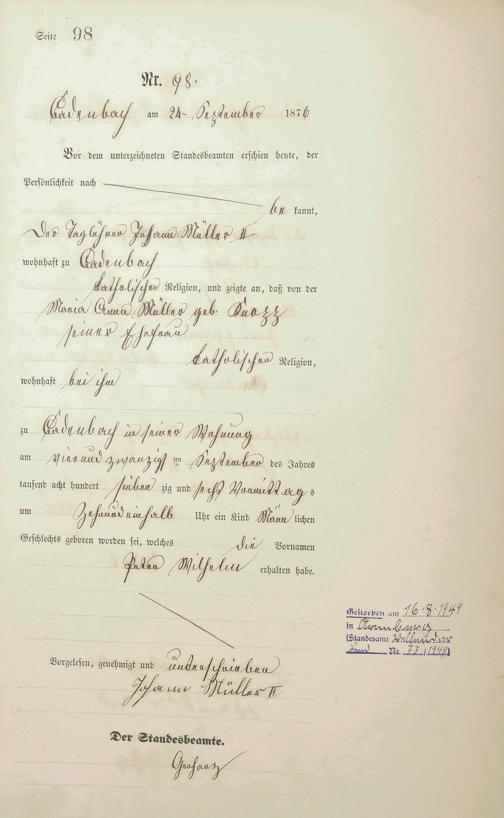 Seite 98
Nr. 98.
Cadenbach am 24. September 1876
Vor dem unterzeichneten Standesbeamten erschien heute, der
Persönlichkeit nach
be kannt,
Der Taglöhner Johann Müller II
wohnhaft zu Cadenbach
katholischer Religion, und zeigte an, daß von der
Maria Anna Müller geb
seiner Ehefrau
katholischer Religion,
wohnhaft bei ihm
zu Cadenbach in seiner Wohnung
am vierundzwanzigsten September des Jahres
tausend acht hundert sieben zig und sechs Vormittag s
um Zehnundeinhalb Uhr ein Kind Männ lichen
Geschlechts geboren worden sei, welches die Vornamen
Peter Wilhelm erhalten habe.
Vorgelesen, genehmigt und unterschrieben
Johann Müller II
Der Standesbeamte.
Gestorben am 16.8.1944
in
(Standesamt
Nr. 73/1944)